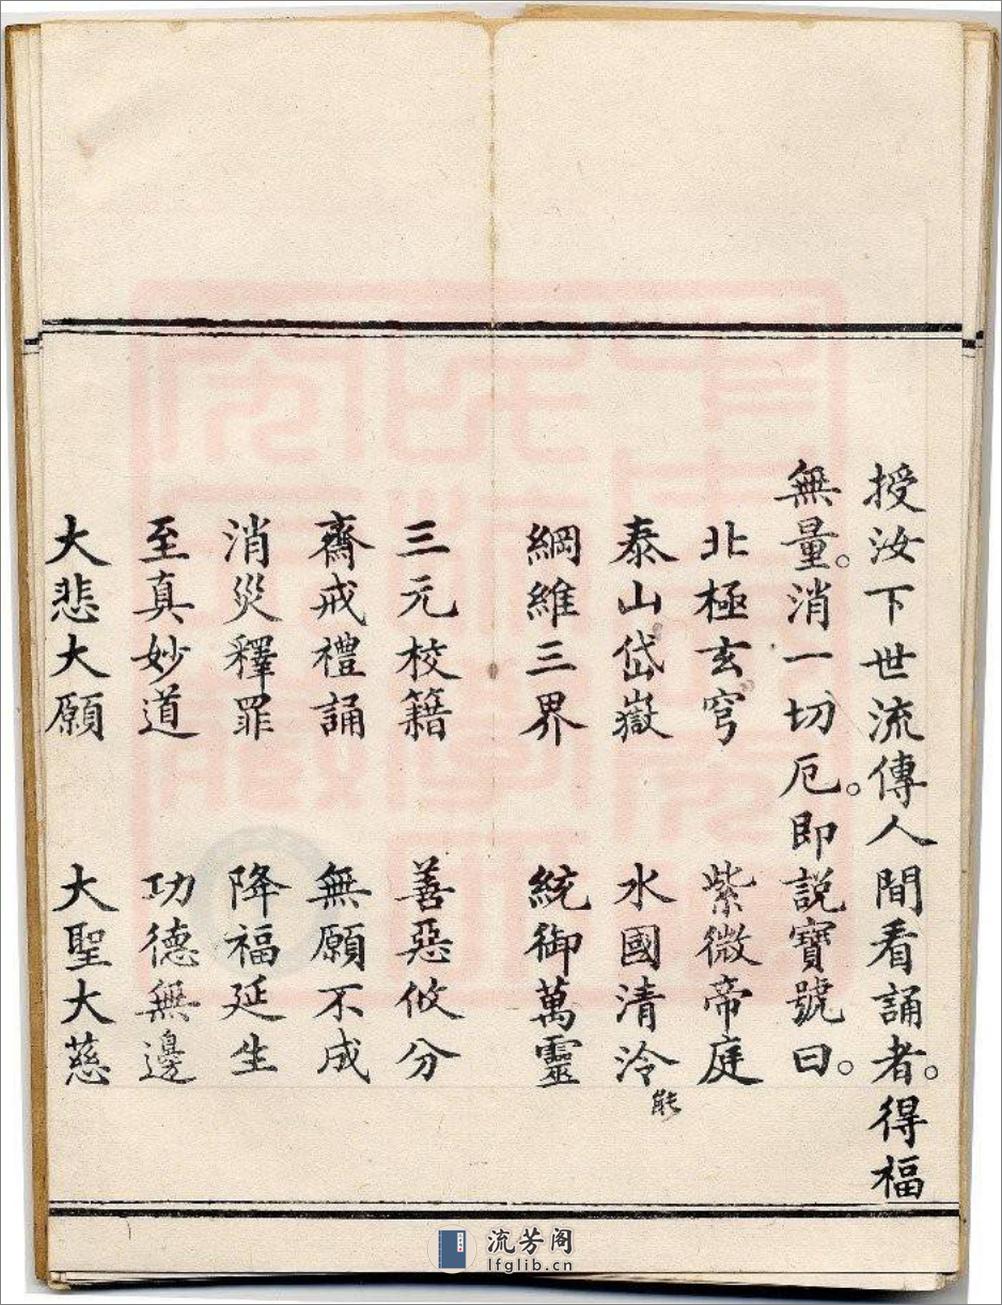 授汝下世流傳人間看誦者。得福
無量。消一切厄。即説寶號曰。
北極玄穹　紫微帝庭
泰山岱嶽　水國清泠
能
綱維三界　統御萬靈
三元校籍　善惡攸分
齋戒禮誦　無願不成
消災釋罪　降福延生
至真妙道　功德無邊
大悲大願　大聖大慈
流芳阁
lfglib.cn